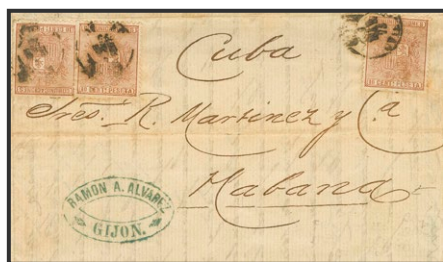 Cuba
Sres. R. Martinez y Ca
Habana
RAMON A. ALVAREZ
GIJON.